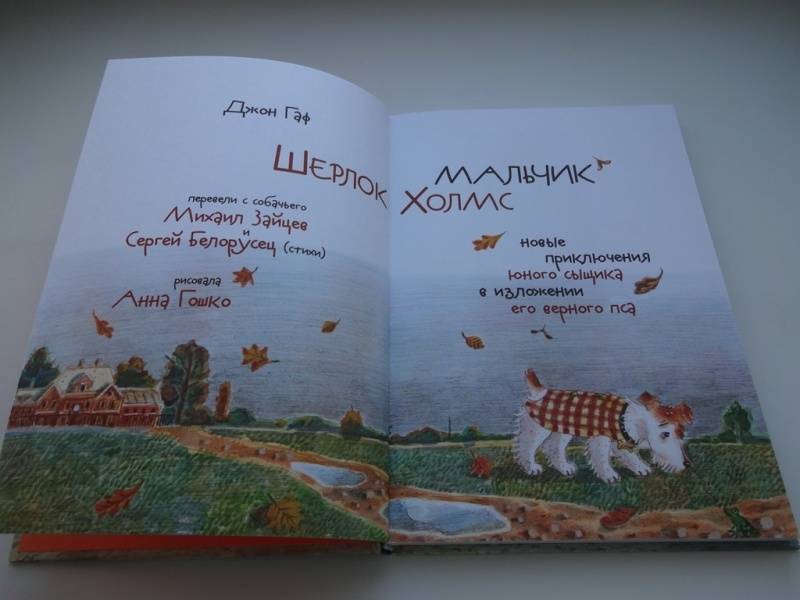 Джон Гаф
ШЕРЛОК
перевели с собачьего
Михаил Зайцев
и
Сергей Белорусец (стихи)
рисовала
Анна Гошко
МАЛЬЧИК
ХОЛМС
новые
приключения
юного сыщика
в изложении
его верного пса